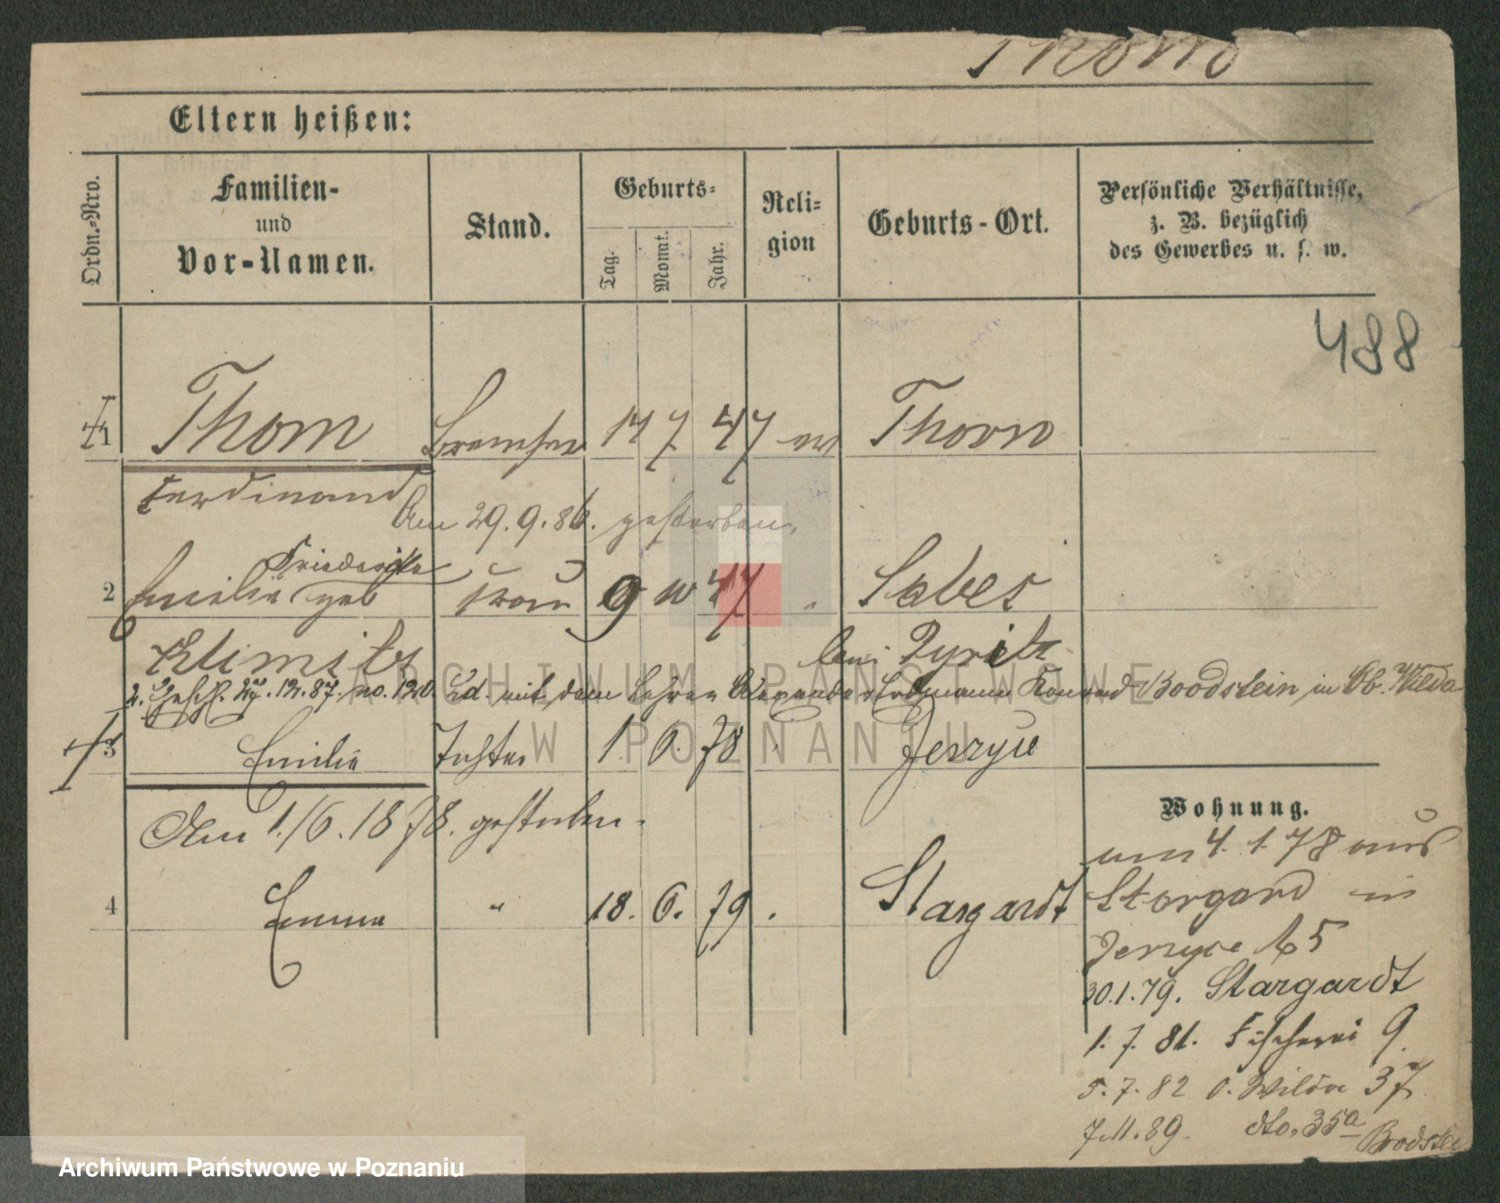 Thom
Eltern heißen:
Ordn.-Nro.
Familien-
und
Vor-Namen.
Stand.
Geburts-
Tag. Monat. Jahr.
Reli-
gion
Geburts-Ort.
Persönliche Verhältnisse,
z. B. bezüglich
des Gewerbes u. s. w.
488
1 Thom Bremser 17 7 47 ev Thorn
Ferdinand
Am 29.9.86. gestorben.
Friederike
2 Emilie geb Frau 9 10 47 " Labes
Klimitz bei Pyritz
2. Ehesch. 27. 12. 87. no. 120. Ed. mit dem Lehrer Alexander Erdmann Konrad Boodstein in Ob. Wilda
3 Emilie Tochter 1. 6. 78 . Jerzyce
Am 1./6. 1878. gestorben.
4 Emma " 18. 6. 79 . Stargardt
Wohnung.
am 4. 1. 78 aus
Stargard in
Jerzyce 65
30.1.79. Stargardt
1. 7. 81. Fischerei 9.
5. 7. 82 O. Wilda 37
7.11.89. dto. 35a
ARCHIWUM PAŃSTWOWE
W POZNANIU
Archiwum Państwowe w Poznaniu